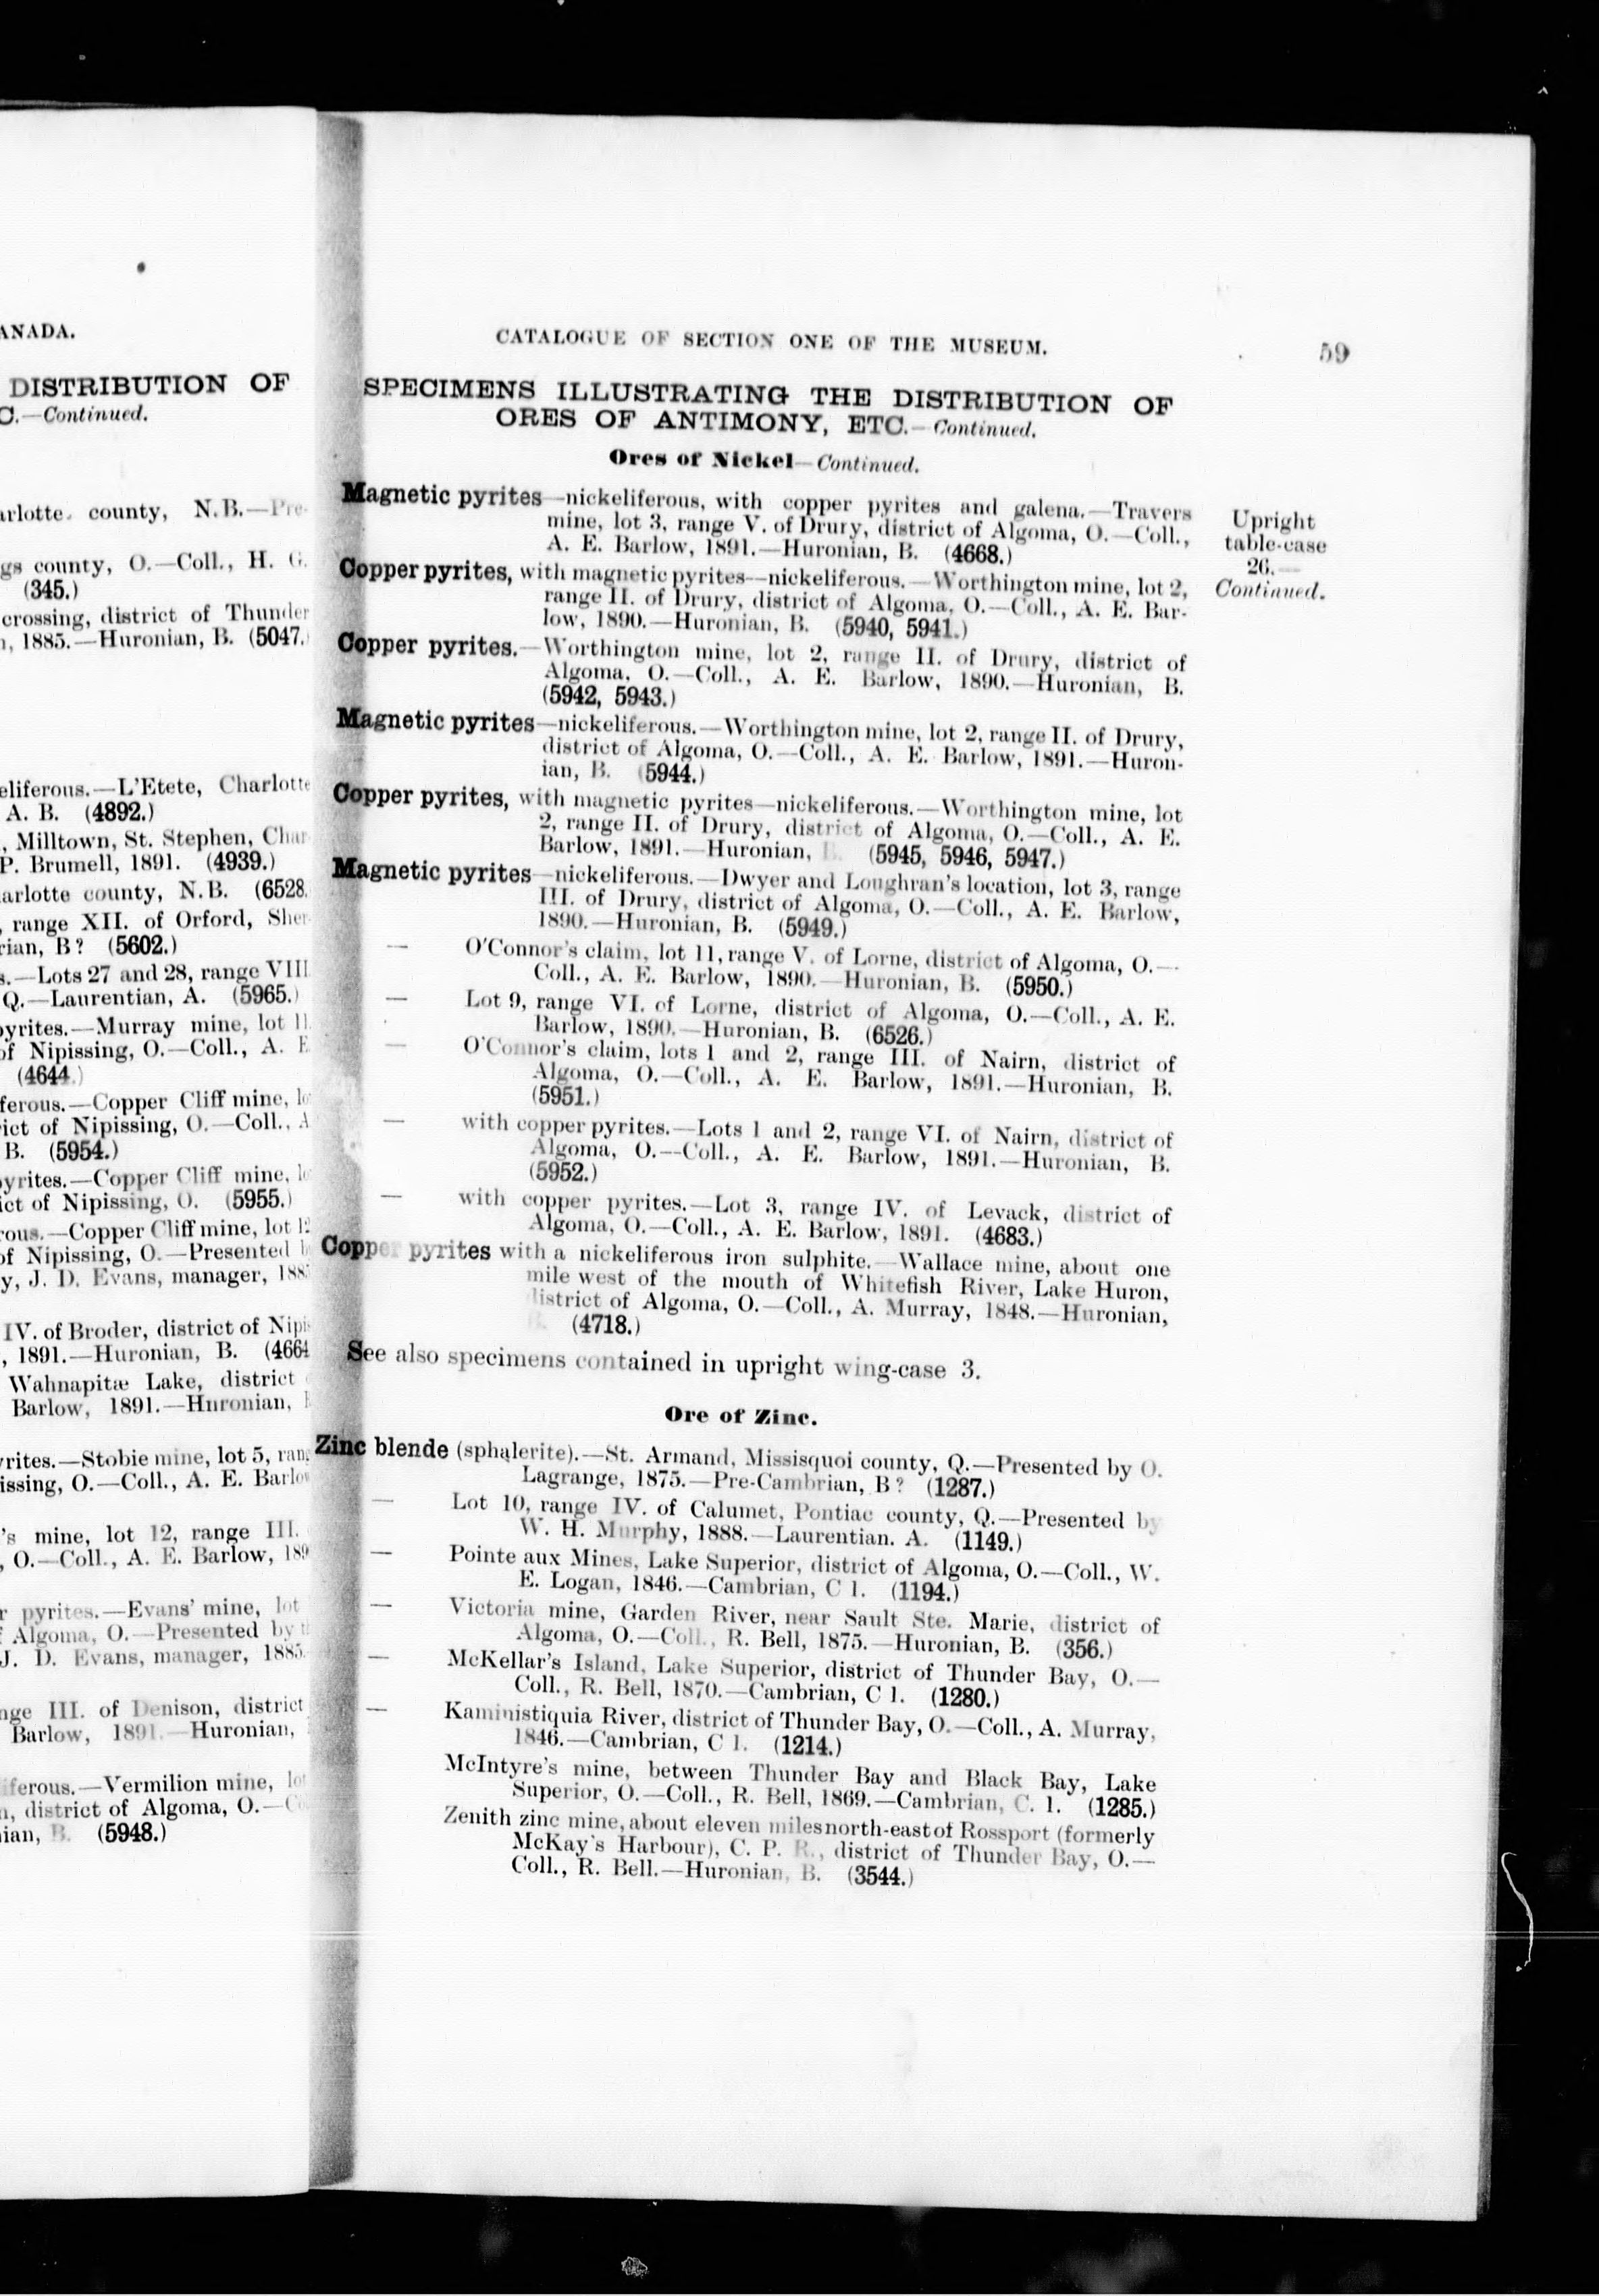 ANADA.
DISTRIBUTION OF
C.—Continued.
arlotte. county, N.B.—Pre-
gs county, O.—Coll., H. G.
(345.)
crossing, district of Thunder
, 1885.—Huronian, B. (5047.)
eliferous.—L'Etete, Charlotte
A. B. (4892.)
, Milltown, St. Stephen, Char
P. Brumell, 1891. (4939.)
arlotte county, N.B. (6528.
, range XII. of Orford, Sher-
rian, B? (5602.)
s.—Lots 27 and 28, range VIII
Q.—Laurentian, A. (5965.)
pyrites.—Murray mine, lot 11
of Nipissing, O.—Coll., A. E
(4644.)
ferous.—Copper Cliff mine, lo
ict of Nipissing, O.—Coll., A
B. (5954.)
yrites.—Copper Cliff mine, lo
ict of Nipissing, O. (5955.)
rous.—Copper Cliff mine, lot 12
of Nipissing, O.—Presented b
y, J. D. Evans, manager, 188
IV. of Broder, district of Nipis
, 1891.—Huronian, B. (4664
Wahnapitæ Lake, district
Barlow, 1891.—Huronian,
yrites.—Stobie mine, lot 5, rang
issing, O.—Coll., A. E. Barlow
's mine, lot 12, range III.
, O.—Coll., A. E. Barlow, 189
r pyrites.—Evans' mine, lot
f Algoma, O.—Presented by t
J. D. Evans, manager, 1885.
nge III. of Denison, district
Barlow, 1891.—Huronian,
iferous.—Vermilion mine, lot
n, district of Algoma, O.—Co
ian, B. (5948.)
CATALOGUE OF SECTION ONE OF THE MUSEUM. 59
SPECIMENS ILLUSTRATING THE DISTRIBUTION OF
ORES OF ANTIMONY, ETC.—Continued.
Ores of Nickel—Continued.
Magnetic pyrites—nickeliferous, with copper pyrites and galena.—Travers
mine, lot 3, range V. of Drury, district of Algoma, O.—Coll.,
A. E. Barlow, 1891.—Huronian, B. (4668.)
Upright
table-case
26.—
Continued.
Copper pyrites, with magnetic pyrites—nickeliferous.—Worthington mine, lot 2,
range II. of Drury, district of Algoma, O.—Coll., A. E. Bar-
low, 1890.—Huronian, B. (5940, 5941.)
Copper pyrites.—Worthington mine, lot 2, range II. of Drury, district of
Algoma, O.—Coll., A. E. Barlow, 1890.—Huronian, B.
(5942, 5943.)
Magnetic pyrites—nickeliferous.—Worthington mine, lot 2, range II. of Drury,
district of Algoma, O.—Coll., A. E. Barlow, 1891.—Huron-
ian, B. (5944.)
Copper pyrites, with magnetic pyrites—nickeliferous.—Worthington mine, lot
2, range II. of Drury, district of Algoma, O.—Coll., A. E.
Barlow, 1891.—Huronian, B. (5945, 5946, 5947.)
Magnetic pyrites—nickeliferous.—Dwyer and Loughran's location, lot 3, range
III. of Drury, district of Algoma, O.—Coll., A. E. Barlow,
1890.—Huronian, B. (5949.)
— O'Connor's claim, lot 11, range V. of Lorne, district of Algoma, O.—
Coll., A. E. Barlow, 1890.—Huronian, B. (5950.)
— Lot 9, range VI. of Lorne, district of Algoma, O.—Coll., A. E.
Barlow, 1890.—Huronian, B. (6526.)
— O'Connor's claim, lots 1 and 2, range III. of Nairn, district of
Algoma, O.—Coll., A. E. Barlow, 1891.—Huronian, B.
(5951.)
— with copper pyrites.—Lots 1 and 2, range VI. of Nairn, district of
Algoma, O.—Coll., A. E. Barlow, 1891.—Huronian, B.
(5952.)
— with copper pyrites.—Lot 3, range IV. of Levack, district of
Algoma, O.—Coll., A. E. Barlow, 1891. (4683.)
Copper pyrites with a nickeliferous iron sulphite.—Wallace mine, about one
mile west of the mouth of Whitefish River, Lake Huron,
district of Algoma, O.—Coll., A. Murray, 1848.—Huronian,
B. (4718.)
See also specimens contained in upright wing-case 3.
Ore of Zinc.
Zinc blende (sphalerite).—St. Armand, Missisquoi county, Q.—Presented by O.
Lagrange, 1875.—Pre-Cambrian, B? (1287.)
— Lot 10, range IV. of Calumet, Pontiac county, Q.—Presented by
W. H. Murphy, 1888.—Laurentian. A. (1149.)
— Pointe aux Mines, Lake Superior, district of Algoma, O.—Coll., W.
E. Logan, 1846.—Cambrian, C 1. (1194.)
— Victoria mine, Garden River, near Sault Ste. Marie, district of
Algoma, O.—Coll., R. Bell, 1875.—Huronian, B. (356.)
— McKellar's Island, Lake Superior, district of Thunder Bay, O.—
Coll., R. Bell, 1870.—Cambrian, C 1. (1280.)
— Kaministiquia River, district of Thunder Bay, O.—Coll., A. Murray,
1846.—Cambrian, C 1. (1214.)
McIntyre's mine, between Thunder Bay and Black Bay, Lake
Superior, O.—Coll., R. Bell, 1869.—Cambrian, C. 1. (1285.)
Zenith zinc mine, about eleven miles north-east of Rossport (formerly
McKay's Harbour), C. P. R., district of Thunder Bay, O.—
Coll., R. Bell.—Huronian, B. (3544.)